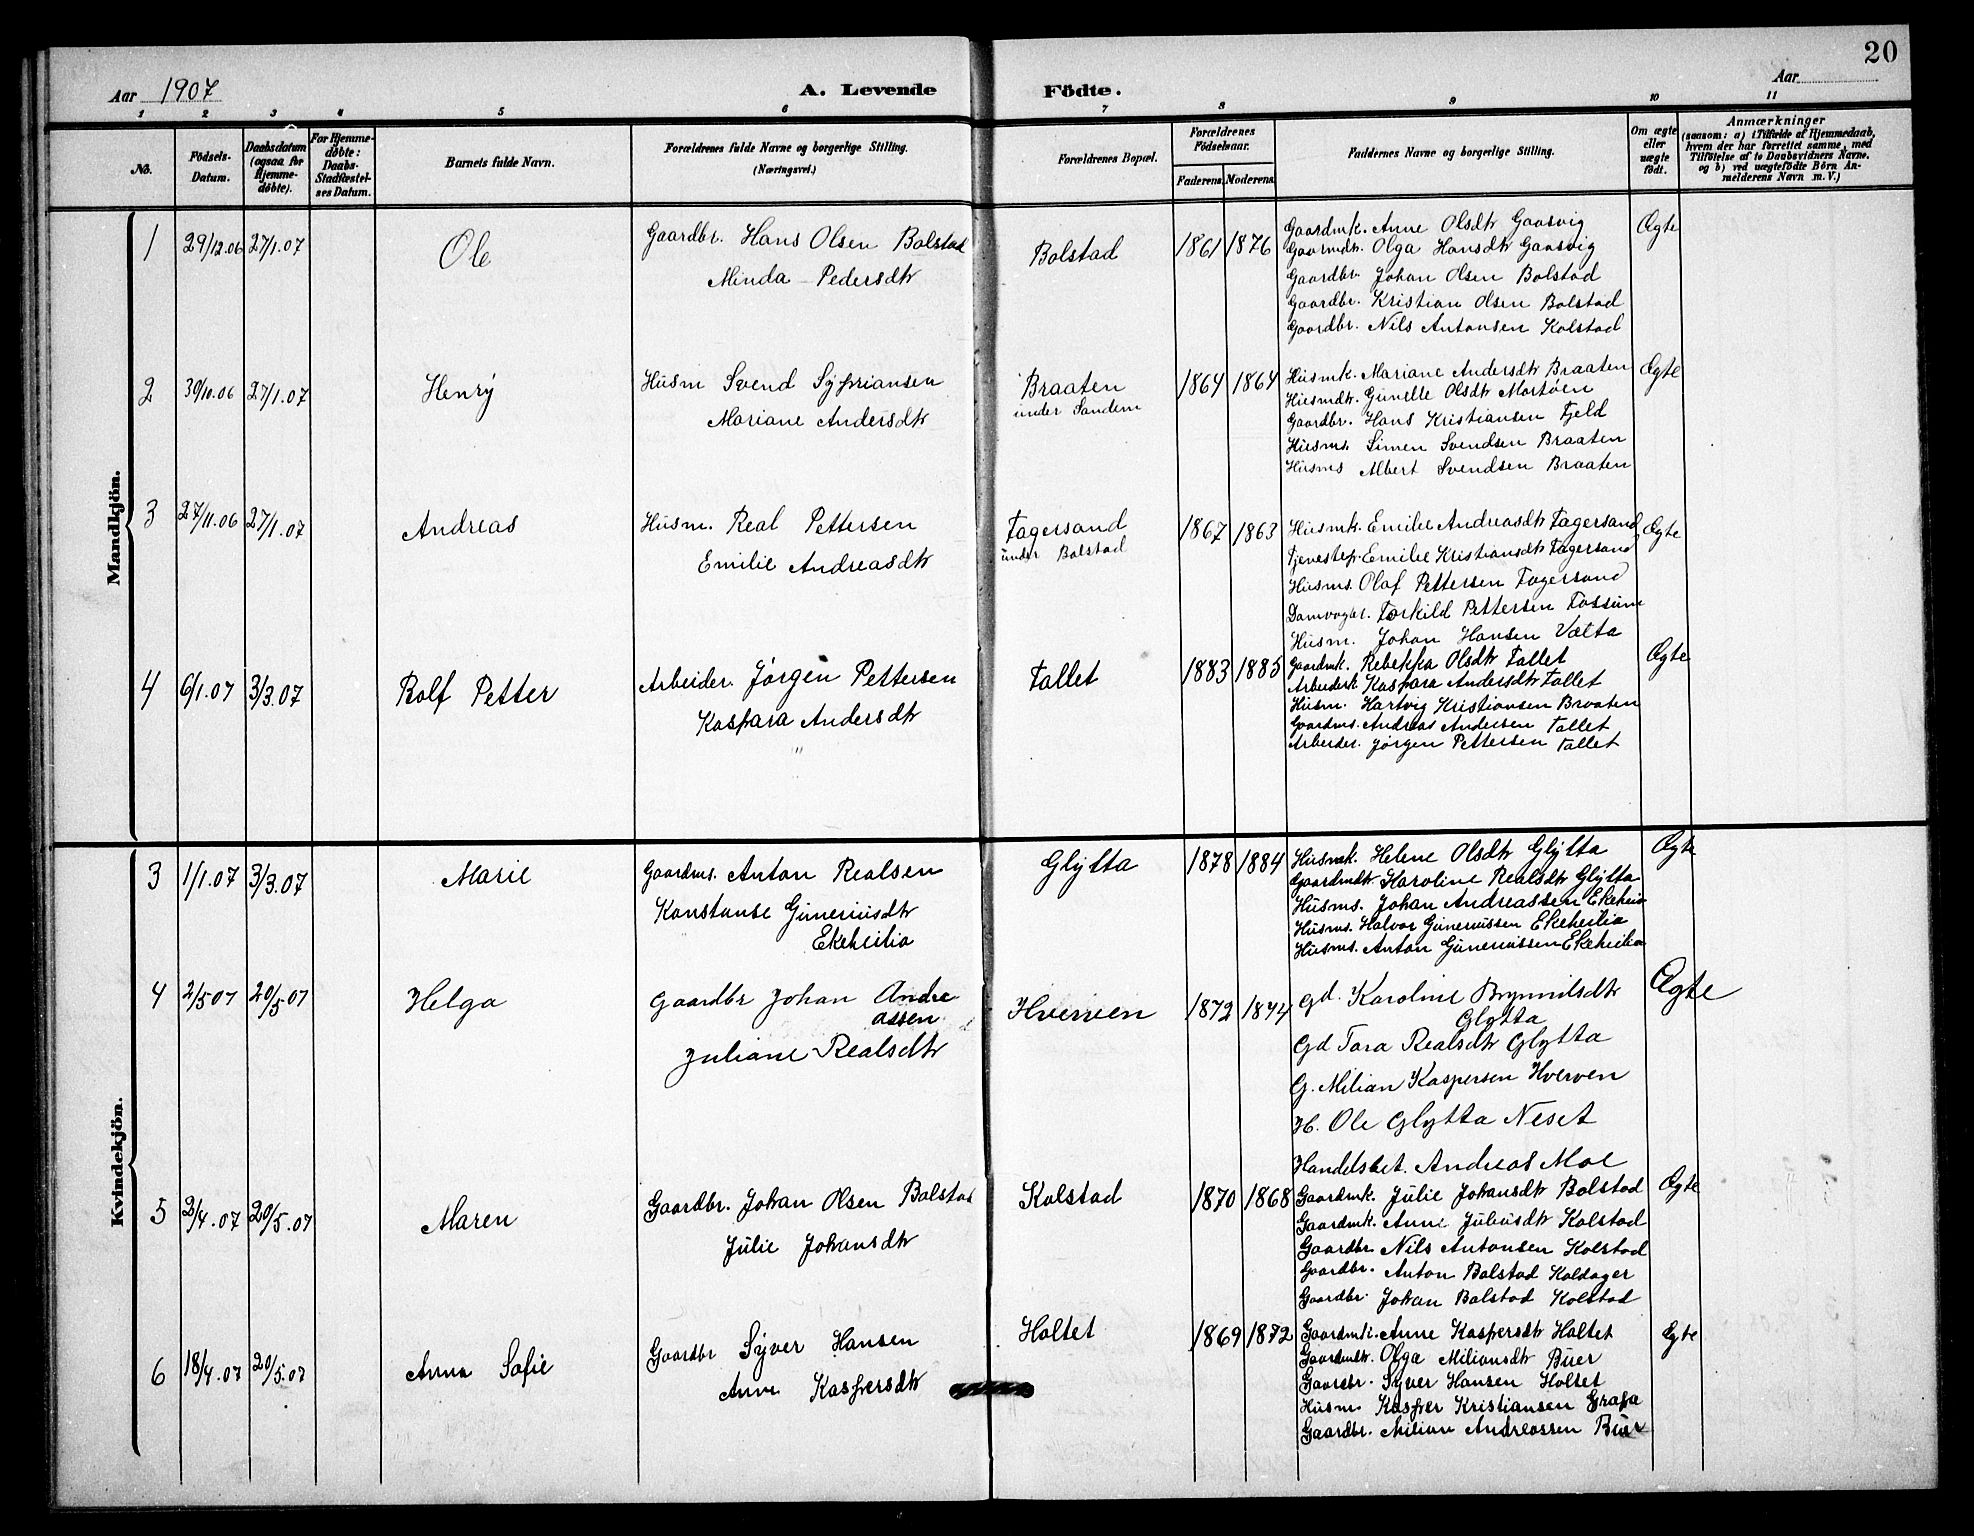 20
Aar 1907
A. Levende Födte.
Aar
1 2 3 4 5 6 7 8 9 10 11
No.
Födsels-
Datum.
Daabsdatum
(ogsaa for
Hjemme-
döbte).
For Hjemme-
döbte:
Daabs-
Stadfæstel-
ses Datum.
Barnets fulde Navn.
Forældrenes fulde Navne og borgerlige Stilling.
(Næringsvei.)
Forældrenes Bopæl.
Forældrenes
Födselsaar.
Faderens. Moderens.
Faddernes Navne og borgerlige Stilling.
Om ægte
eller
uægte
födt.
Anmærkninger
(saasom: a) i Tilfælde af Hjemmedaab,
hvem der har forrettet samme, med
Tilföielse af to Daabsvidners Navne.
og b) ved uægtefödte Börn An-
melderens Navn m. V.)
Mandkjön.
1 29/12.06 27/1.07 Ole
Gaardbr. Hans Olsen Bolstad
Minda Pedersdtr
Bolstad
1861 1876
Gaardmk. Anne Olsdtr Gaasvig
Gaarmdtr. Olga Hansdtr Gaasvig
Gaardbr. Johan Olsen Bolstad
Gaardbr. Kristian Olsen Bolstad
Gaardbr. Nils Antonsen Kolstad
Ægte
2 30/10.06 27/1.07 Henry
Husm Svend Sypriansen
Mariane Andersdtr
Braaten
under Sandem
1864 1864
Husmk. Mariane Andersdtr Braaten
Husmdtr. Gunelle Olsdtr Mortøen
Gaardbr. Hans Kristiansen Fjeld
Husms. Simen Svendsen Braaten
Husms Albert Svendsen Braaten
Ægte
3 27/11.06 27/1.07 Andreas
Husm. Real Pettersen
Emilie Andreasdtr
Fagersand
under Bolstad
1867 1863
Husmk. Emilie Andreasdtr Fagersand
Tjenestep. Emilie Kristiansdtr Fagersand
Husms. Olaf Pettersen Fagersand
Damvogter. Torkild Pettersen Fossum
Husm. Johan Hansen Vælta
Ægte
4 6/1.07 3/3.07 Rolf Petter
Arbeider. Jørgen Pettersen
Kaspara Andersdtr
"
Tallet
1883 1885
Gaardmk. Rebekka Olsdtr Tallet
Arbeiderk. Kaspara Andersdtr Tallet
Husm. Hartvig Kristiansen Braaten
Gaardms. Andreas Andersen Tallet
Arbeider. Jørgen Pettersen Tallet
Ægte
Kvindekjön.
3 1/1.07 3/3.07 Marie
Gaardms. Anton Realsen
Konstanse Guneriusdtr
Ekeheilia
Glytta
1878 1884
Husmk. Helene Olsdtr Glytta
Gaardmdtr Karoline Realsdtr Glytta
Husms. Johan Andreassen Ekeheia
Husms. Halvor Guneriussen Ekeheilia
Husms. Anton Guneriussen Ekeheilia
Ægte
4 2/5 07 20/5.07 Helga
Gaardbr Johan Andre
assen
Juliane Realsdtr
Hverven
1872 1874
Gd. Karoline Brynnilsdtr
Glytta
Gd Tora Realsdtr Glytta
G. Milian Kaspersen Hverven
H. Ole Glytta Neset
Handelsbet. Andreas Moe
Ægte
5 2/4.07 20/5.07 Maren
Gaardbr. Johan Olsen Bolstad
Julie Johansdtr
Kolstad
1870 1868
Gaardmk. Julie Johansdtr Bolstad
Gaardmk. Anne Juliusdtr Kolstad
Gaardbr. Nils Antonsen Kolstad
Gaardbr. Anton Bolstad Koldager
Gaardbr. Johan Bolstad Kolstad
Ægte
6 18/4.07 20/5.07 Anna Sofie
Gaardbr Syver Hansen
Anne Kaspersdtr
Holtet
1869 1872
Gaardmk. Anne Kaspersdtr Holtet
Gaardmdtr. Olga Miliansdtr Buer
Gaardbr. Syver Hansen Holtet
Husm Kasper Kristiansen Grafa
Gaardbr. Milian Andreassen Buer
Ægte